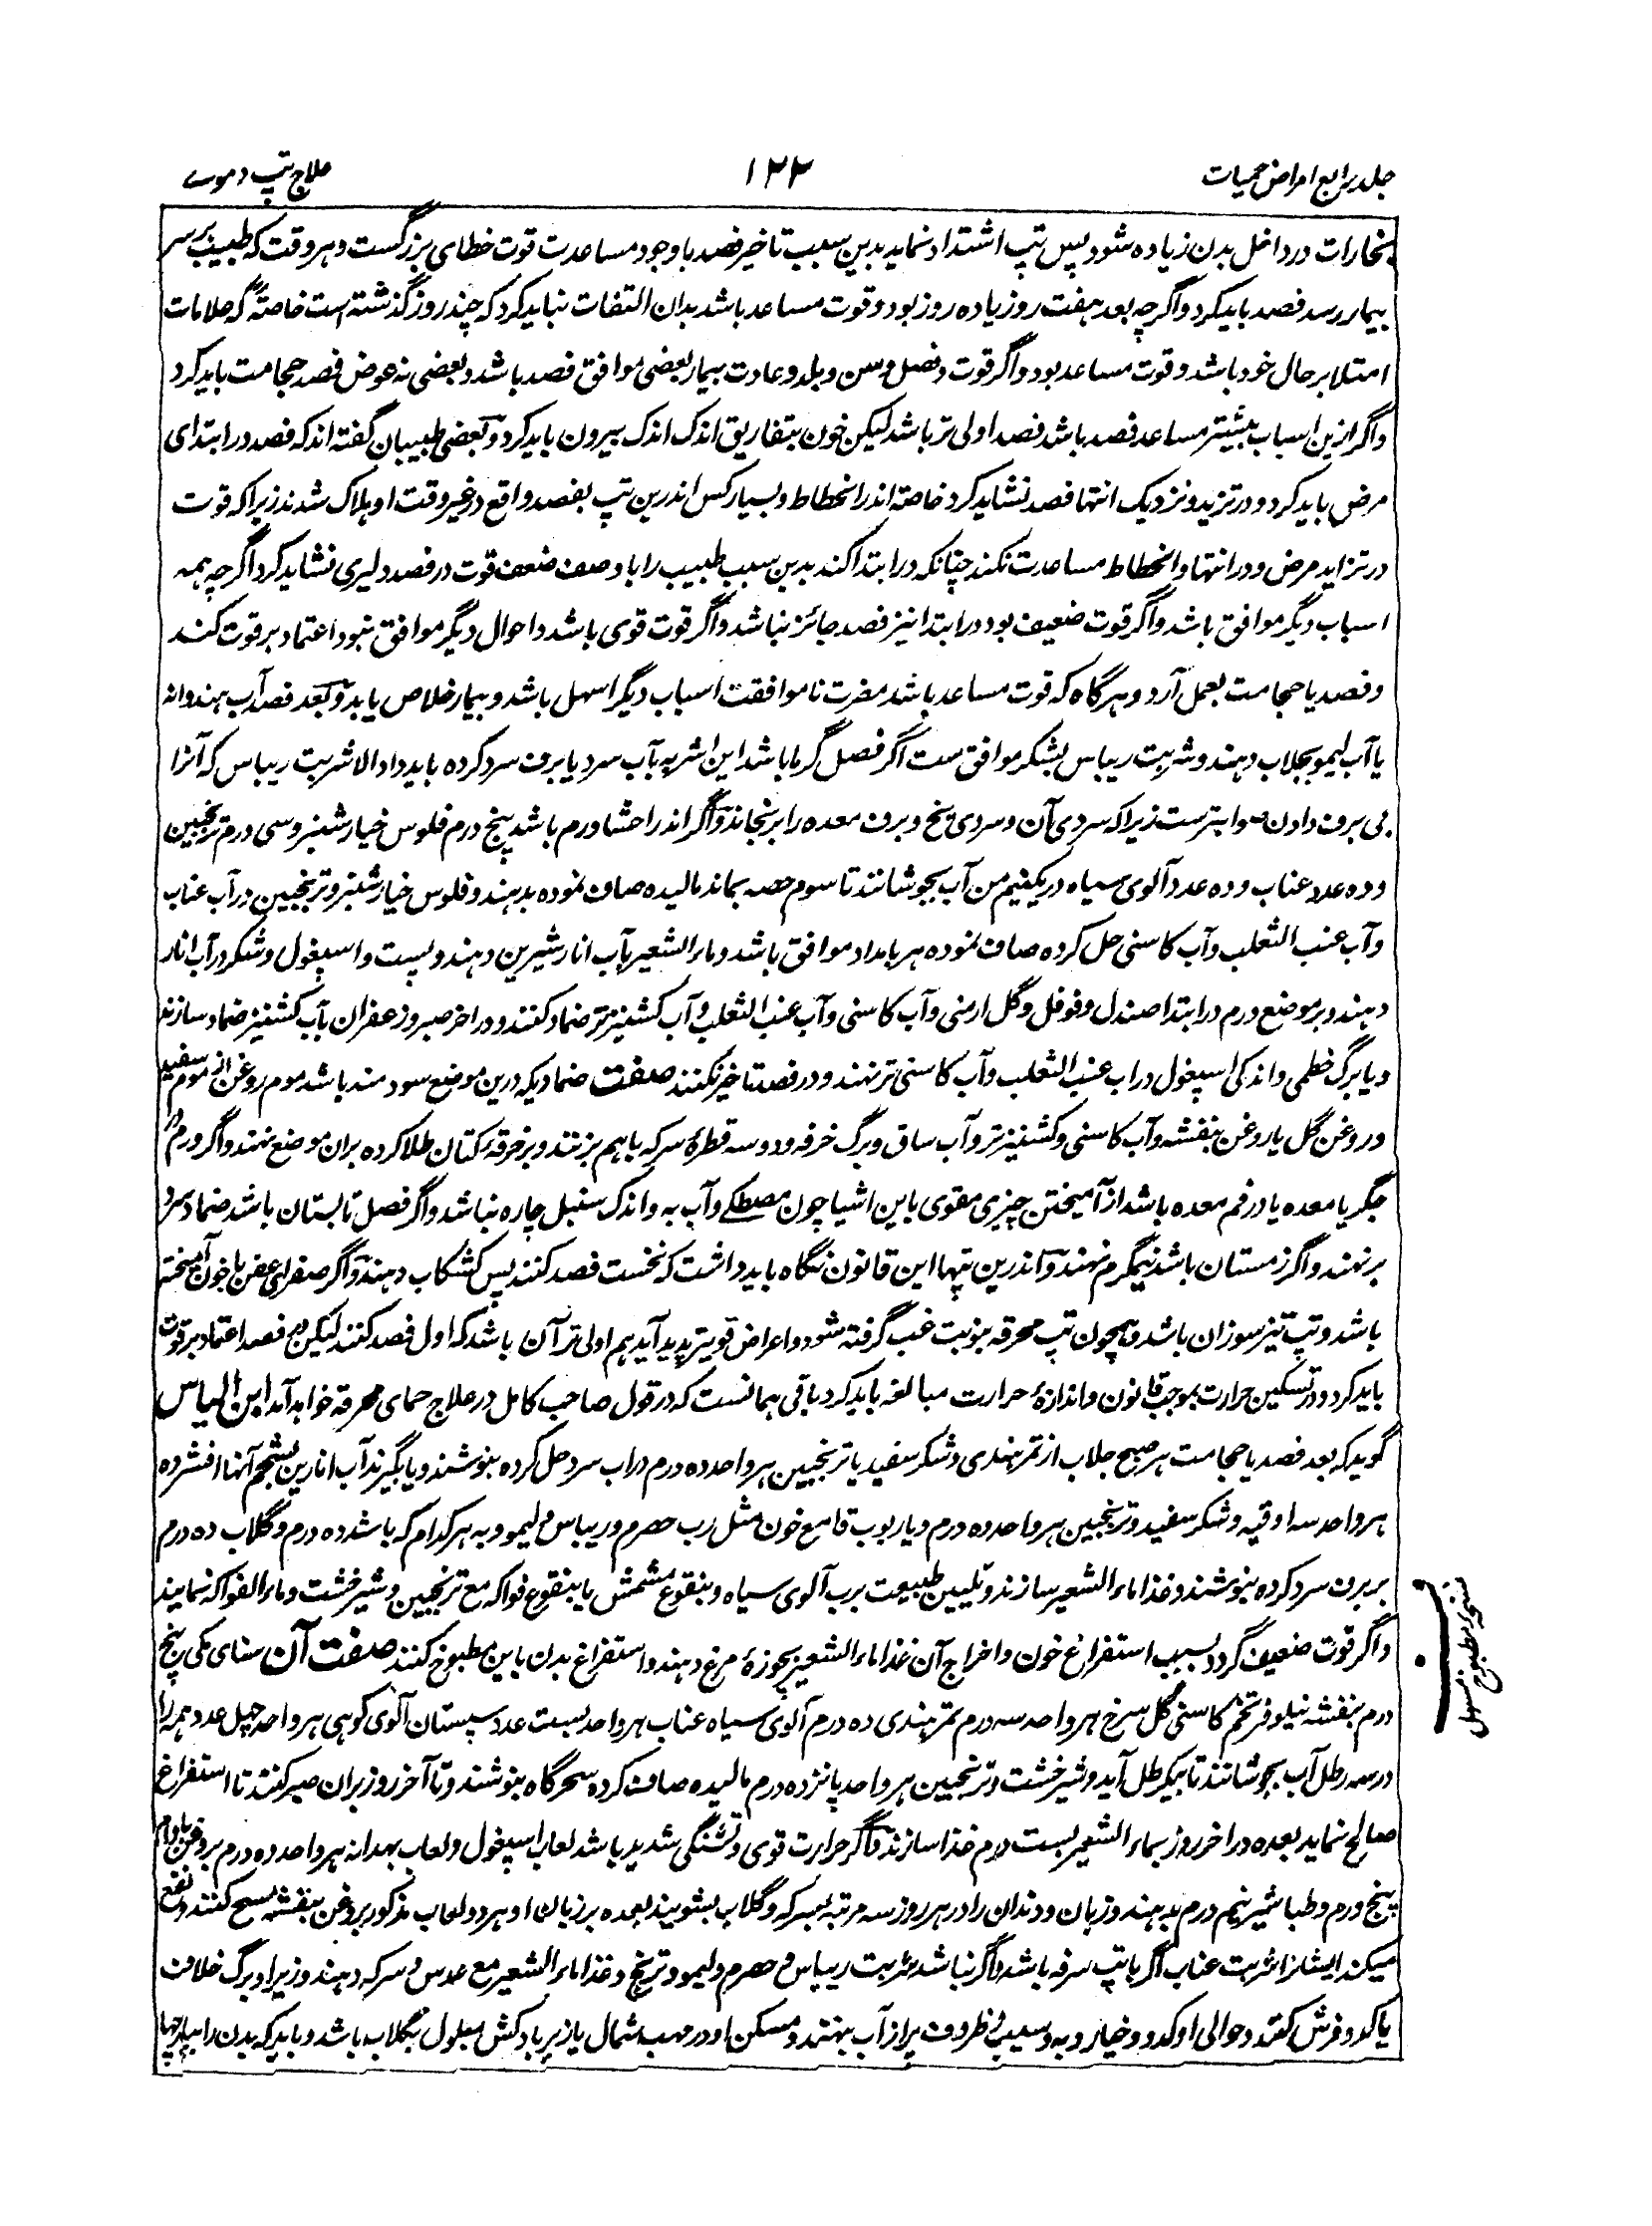 جلد رابع امراض حمیات
۱۲۲
علاج تپ دموے
بخارات در داخل بدن زیاده شود پس تپ اشتداد نماید بدین سبب تاخیر فصد با وجود مساعدت قوت خطای بزرگست و هر وقت که طبیب بر سر
بیمار رسد فصد باید کرد و اگرچه بعد هفت روز یا ده روز بود و قوت مساعد باشد بدان التفات نباید کرد که چند روز گذشته است خاصةً که علامات
امتلا بر حال خود باشد و قوت مساعد بود و اگر قوت و فصل و سن و بلد و عادت بیمار بعضی موافق فصد باشد و بعضی نه عوض فصد حجامت باید کرد
و اگر ازین اسباب بیشتر مساعد فصد باشد فصد اولی تر باشد لیکن خون بتفاریق اندک اندک بیرون باید کرد و بعضی طبیبان گفته اند که فصد در ابتدای
مرض باید کرد و در تزید و نزدیک انتها فصد نشاید کرد خاصة اندر انحطاط و بسیار کس اندرین تپ بفصد واقع در غیر وقت او هلاک شدند زیرا که قوت
در تزاید مرض و در انتها و انحطاط مساعدت نکند چنانکه در ابتدا کند بدین سبب طبیب را با وصف ضعف قوت در فصد دلیری نشاید کرد اگرچه همه
اسباب دیگر موافق باشد و اگر قوت ضعیف بود در ابتدا نیز فصد جائز نباشد و اگر قوت قوی باشد و احوال دیگر موافق نبود اعتماد بر قوت کنند
و فصد یا حجامت بعمل آرد و هرگاه که قوت مساعد باشد مضرت ناموافقت اسباب دیگر اسهل باشد و بیمار خلاص یابد و بعد فصد آب هندوانه
یا آب لیمو بجلاب دهند و شربت ریباس بشکر موافق ست اگر فصل گرما باشد این اشربه بآب سرد یا برف سرد کرده باید داد الا شربت ریباس که آنرا
بی برف دادن صوابترست زیرا که سردی آن و سردی یخ و برف معده را برنجاند و اگر اندر احشا ورم باشد پنج درم فلوس خیارشنبر و سی درم ترنجبین
و ده عدد عناب و ده عدد آلوی سیاه در یکنیم من آب بجوشانند تا سوم حصه بماند مالیده صاف نموده بدهند و فلوس خیارشنبر و ترنجبین در آب عناب
و آب عنب الثعلب و آب کاسنی حل کرده صاف نموده هر بامداد موافق باشد و ماء الشعیر بآب انار شیرین دهند و پست و اسپغول و شکر در آب انار
دهند و بر موضع ورم در ابتدا صندل و فوفل و گل ارمنی و آب کاسنی و آب عنب الثعلب و آب کشنیز تر ضماد کنند و در اخر صبر و زعفران بآب کشنیز ضماد سازند
و یا برگ خطمی و اندکی اسپغول در اب عنب الثعلب و آب کاسنی تر نهند و در فصد تاخیر نکنند صفت ضمادیکه درین موضع سودمند باشد موم روغن از موم سفید
و روغن گل یا روغن بنفشه و آب کاسنی و کشنیز تر و آب ساق و برگ خرفه و دو سه قطرۀ سرکه باهم بزنند و بر خرقۀ کتان طلا کرده بران موضع نهند و اگر ورم در
جگر یا معده یا در فم معده باشد از آمیختن چیزی مقوی باین اشیا چون مصطکے و آب به و اندک سنبل چاره نباشد و اگر فصل تابستان باشد ضماد سرد
بر نهند و اگر زمستان باشد نیمگرم نهند و اندرین تپها این قانون نگاه باید داشت که نخست فصد کنند پس کشکاب دهند و اگر صفرای عفن با خون آمیخته
باشد و تپ تیز سوزان باشد و همچون تپ محرقه بنوبت غب گرفته شود و اعراض قویتر پدید آید هم اولی تر آن باشد که اول فصد کنند لیکن در فصد اعتماد بر قوت
باید کرد و در تسکین حرارت بموجب قانون و اندازۀ حرارت مبالغه باید کرد باقی همانست که در قول صاحب کامل در علاج حمای محرقه خواهد آمد ابن الیاس
گوید که بعد فصد یا حجامت هر صبح جلاب از تمرهندی و شکر سفید یا ترنجبین هر واحد ده درم در اب سرد حل کرده بنوشند و یا بگیرند آب انارین بشحم آنها افشرده
هر واحد سه اوقیه و شکر سفید و ترنجبین هر واحد ده درم و یا ربوب قامع خون مثل رب حصرم و ریباس و لیمو و به هر کدام که باشد ده درم و گلاب ده درم
بر برف سرد کرده بنوشند و غذا ماء الشعیر سازند و تلیین طبیعت برب آلوی سیاه و بنقوع مشمش یا بنقوع فواکه مع ترنجبین و شیرخشت و ماء الفواکه نمایند
و اگر قوت ضعیف گردد بسبب استفراغ خون و اخراج آن غذا ماء الشعیر بچوزۀ مرغ دهند و استفراغ بدن باین مطبوخ کنند صفت آن سنای مکی پنج
درم بنفشه نیلوفر تخم کاسنی گل سرخ هر واحد سه درم تمرهندی ده درم آلوی سیاه عناب هر واحد بست عدد سپستان آلوی کوهی هر واحد چهل عدد همه را
در سه رطل آب بجوشانند تا بیک رطل آید و شیرخشت و ترنجبین هر واحد پانزده درم مالیده صاف کرده سحرگاه بنوشند و تا آخر روز بران صبر کنند تا استفراغ
صالح نماید بعده در اخر روز بماء الشعیر بست درم غذا سازند و اگر حرارت قوی و تشنگی شدید باشد لعاب اسپغول و لعاب بهدانه هر واحد ده درم بروغن بادام
پنج درم و طباشیر نیم درم بدهند و زبان و دندان را در هر روز سه مرتبه بسرکه و گلاب بشویند بعده بر زبان او هر دو لعاب مذکور بروغن بنفشه مسح کنند و نفع
میکند ایشانرا شربت عناب اگر با تپ سرفه باشد و اگر نباشد شربت ریباس و حصرم و لیمو و ترنج و غذا ماء الشعیر مع عدس و سرکه دهند و زیر او برگ خلاف
یا کدو فرش کنند و حوالی او کدو و خیار و به و سیب و ظروف پر از آب بنهند و مسکن او در مهب شمال یا زیر بادکش مبلول بگلاب باشد و باید که بدن را
نسخه مطبوخ مسهل